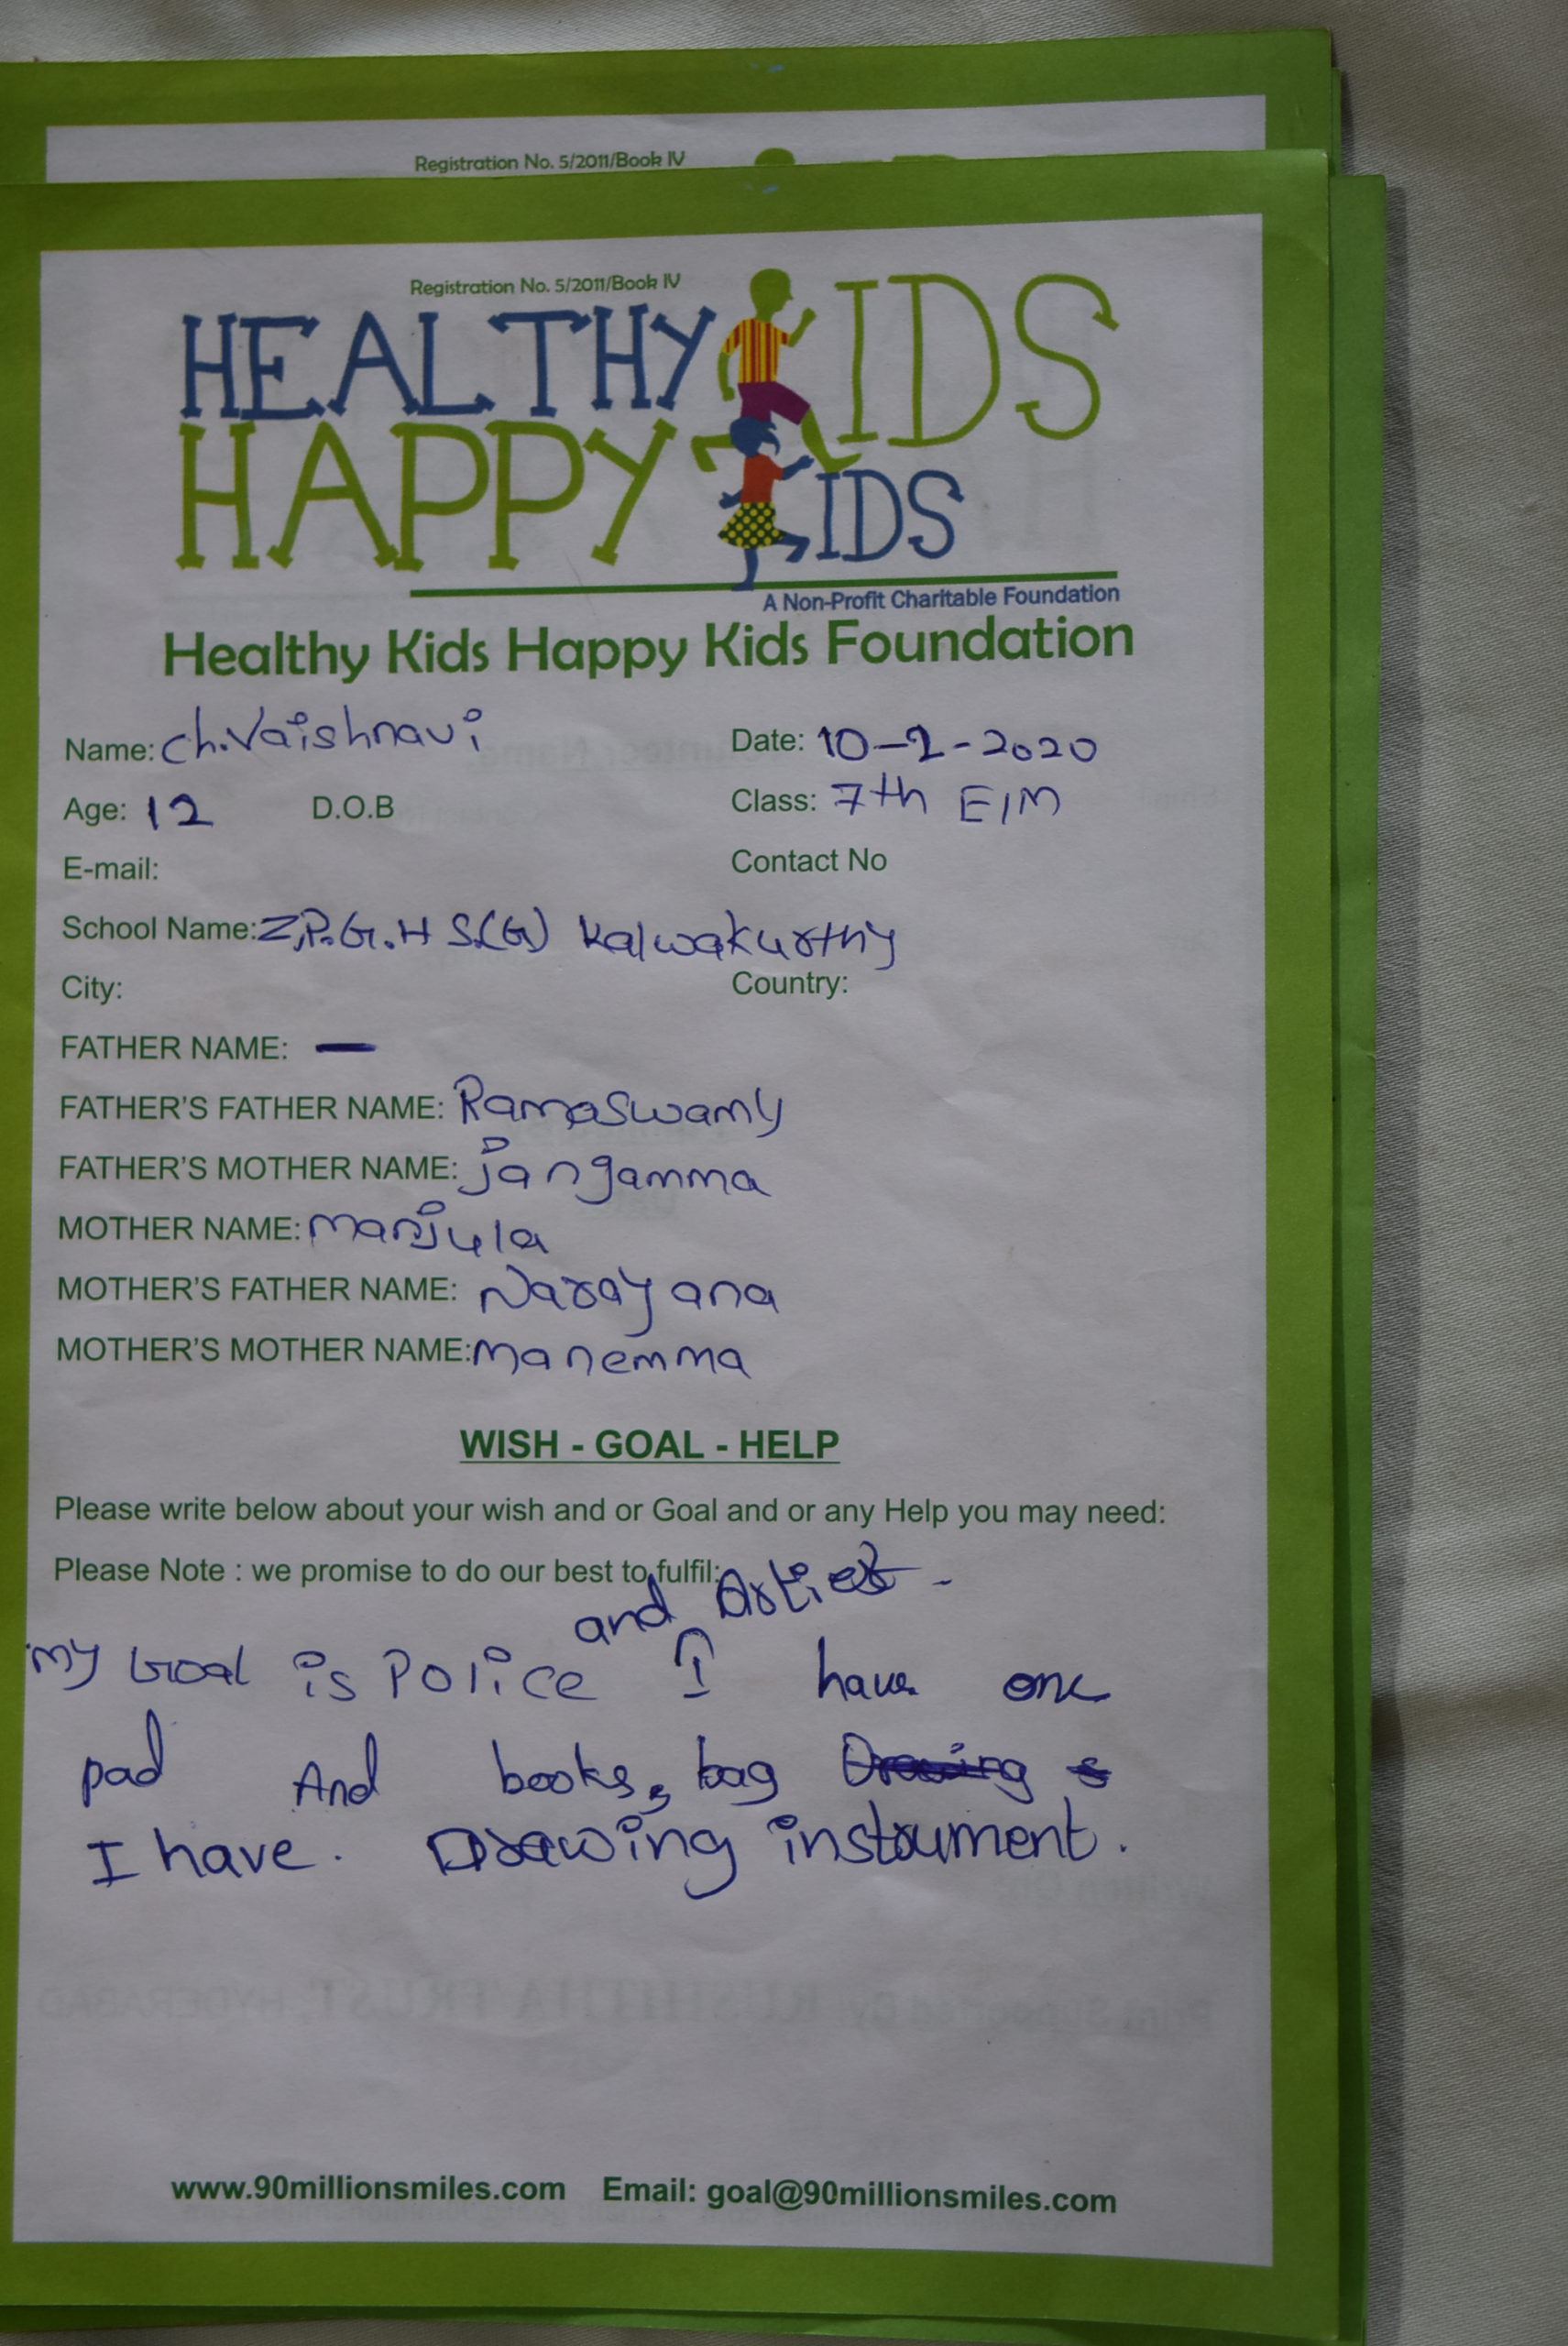 Registration No. 5/2011/Book IV
Registration No. 5/2011/Book IV
HEALTHY KIDS
HAPPY KIDS
A Non-Profit Charitable Foundation
Healthy Kids Happy Kids Foundation
Name: Ch.Vaishnavi Date: 10-2-2020
Age: 12 D.O.B Class: 7th E/M
E-mail: Contact No
School Name: Z.P.G.H S.(G) Kalwakurthy
City: Country:
FATHER NAME: —
FATHER'S FATHER NAME: Ramaswamy
FATHER'S MOTHER NAME: jangamma
MOTHER NAME: manjula
MOTHER'S FATHER NAME: Narayana
MOTHER'S MOTHER NAME: manemma
WISH - GOAL - HELP
Please write below about your wish and or Goal and or any Help you may need:
Please Note : we promise to do our best to fulfil:
and
my Goal is Police I have one
pad And books, bag Drawing s
I have. Drawing instrument.
www.90millionsmiles.com Email: goal@90millionsmiles.com